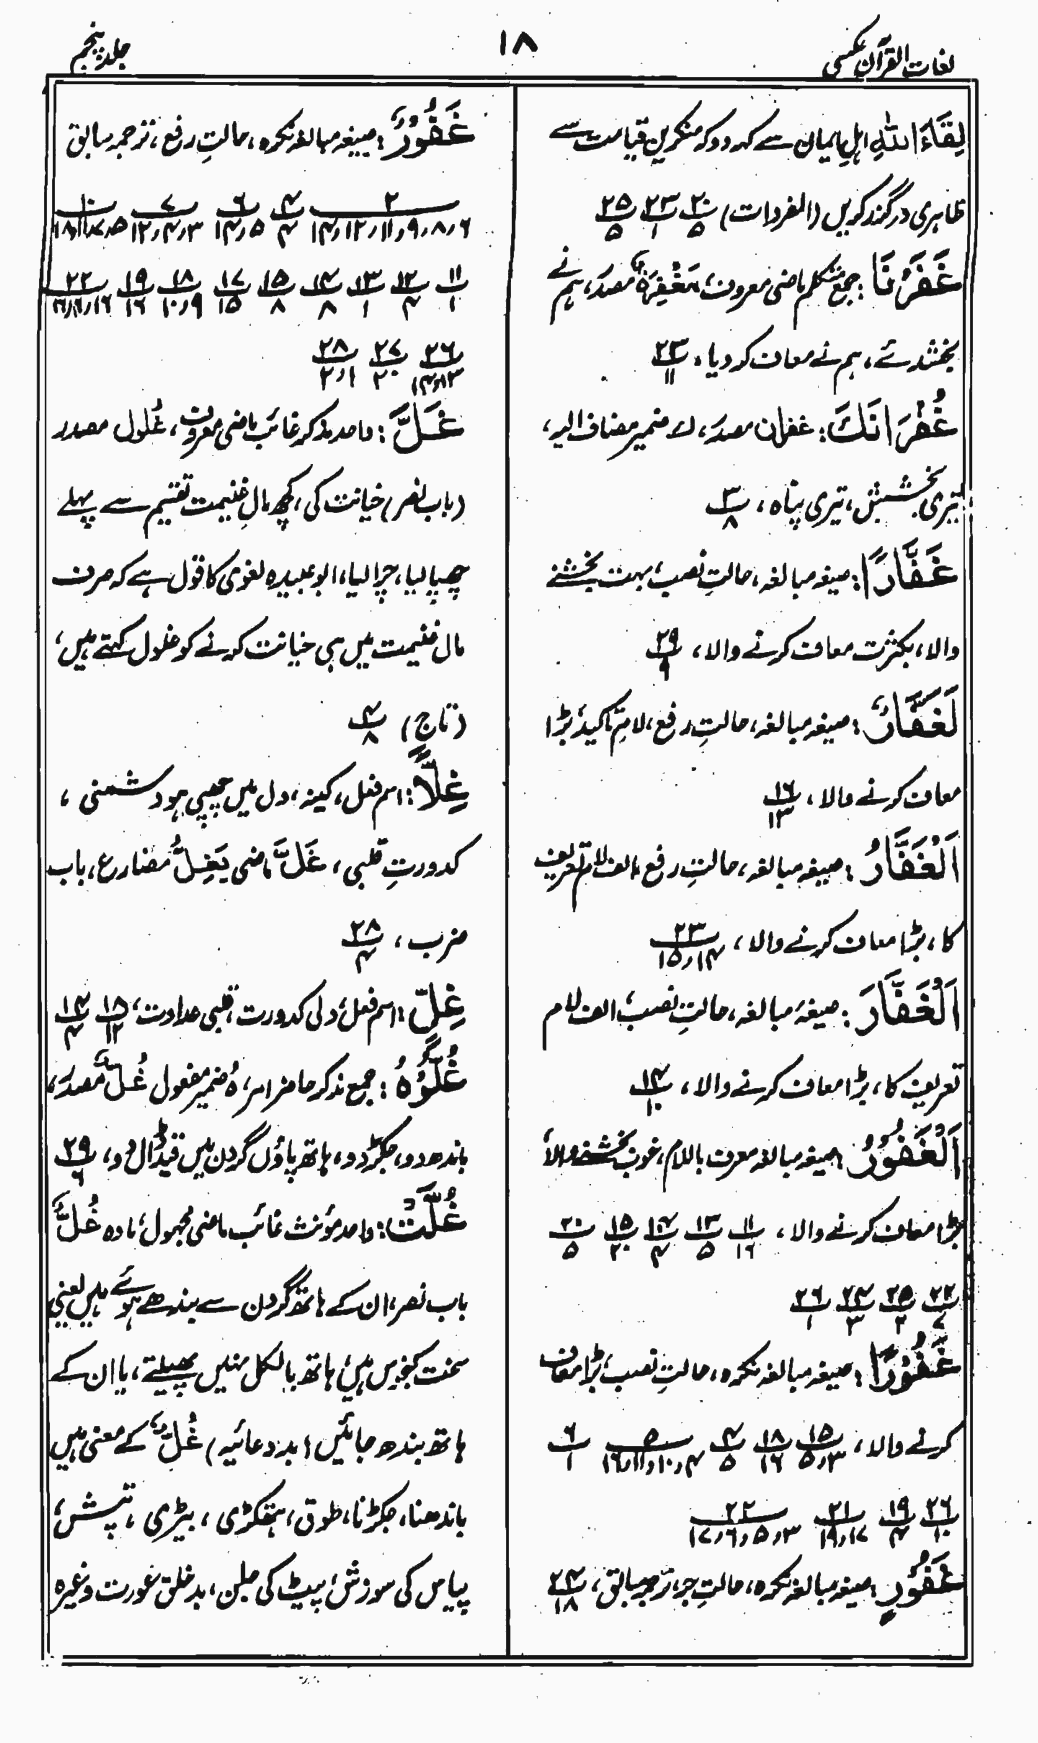 لغات القرآن عکسی
۱۸
جلد پنجم
لِقَاءَ اللهِ اہلِ ایمان سے کہہ دو کہ منکرینِ قیامت سے
ظاہری درگذر کریں (المفردات) ۲۰/۵ ۲۳/۱ ۲۵/۵
غَفَرْنَا: جمع متکلم ماضی معروف، مَغْفِرَۃٌ مصدر، ہم نے
بخشدئے، ہم نے معاف کر دیا، ۲۳/۱۱
غُفْرَانَكَ: غفران مصدر، ك ضمیر مضاف الیہ،
تیری بخشش، تیری پناہ، ۳/۸
غَفَّارًا: صیغہ مبالغہ، حالتِ نصب، بہت بخشنے
والا، بکثرت معاف کرنے والا، ۲۹/۹
لَغَفَّارٌ: صیغہ مبالغہ، حالتِ رفع، لامِ تاکید، بڑا
معاف کرنے والا، ۱۶/۱۳
اَلْغَفَّارُ: صیغہ مبالغہ، حالتِ رفع، الف لام تعریف
کا، بڑا معاف کرنے والا، ۲۳/۱۴،۱۵
اَلْغَفَّارَ: صیغۂ مبالغہ، حالتِ نصب، الف لام
تعریف کا، بڑا معاف کرنے والا، ۲۴/۱۰
اَلْغَفُوْرُ: صیغہ مبالغہ معرف باللام، خوب بخشنے والا،
بڑا معاف کرنے والا، ۱۱/۱۶ ۱۳/۵ ۱۴/۴ ۱۵/۲۰ ۲۰/۵
۲۲/۷ ۲۵/۲ ۲۴/۳ ۲۶/۱
غَفُوْرًا: صیغہ مبالغہ نکرہ، حالتِ نصب، بڑا معاف
کرنے والا، ۱۵/۳،۵ ۱۸/۱۶ ۴/۵ ۵/۴،۱۰،۱۱،۱۶ ۶/۱
۲۶/۱۰ ۱۹/۴ ۲۱/۱۷،۱۹ ۲۲/۳،۵،۶،۱۷
غَفُوْرٍ: صیغہ مبالغہ نکرہ، حالتِ جر، ترجمہ سابق، ۲۴/۱۸
غَفُوْرٌ: صیغہ مبالغہ نکرہ، حالتِ رفع، ترجمہ سابق
۲/۶،۸،۹،۱۱،۱۲،۱۴ ۴/۴ ۶/۵،۱۴ ۷/۳،۴،۱۲ ۱۰/۵،۷،۱۱،۱۸
۱۱/۱ ۱۲/۴ ۱۳/۱ ۱۴/۸ ۱۵/۸ ۱۷/۱۵ ۱۸/۹،۱۰ ۱۹/۱۶ ۲۲/۱۶
۲۶/۱۳،۱۴ ۲۷/۲۰ ۲۸/۱،۲
غَلَّ: واحد مذکر غائب ماضی معروف، غُلول مصدر
(باب نصر) خیانت کی، کچھ مالِ غنیمت تقسیم سے پہلے
چھپا لیا، چرا لیا، ابو عبیدہ لغوی کا قول ہے کہ صرف
مالِ غنیمت میں ہی خیانت کرنے کو غلول کہتے ہیں،
(تاج) ۴/۸
غِلًّا: اسم فعل، کینہ، دل میں چھپی ہو دشمنی،
کدورتِ قلبی، غَلَّ ماضی یَغِلُّ مضارع، باب
ضرب، ۲۸/۴
غِلٍّ: اسم فعل، دلی کدورت، قلبی عداوت، ۱۵/۱۲ ۱۴/۴
غُلُّوْہُ: جمع مذکر حاضر امر، ہُ ضمیر مفعول غُلٌّ مصدر،
باندھ دو، جکڑ دو، ہاتھ پاؤں گردن میں قید ڈال دو، ۲۹/۶
غُلَّتْ: واحد مؤنث غائب ماضی مجہول، مادہ غُلٌّ
باب نصر، ان کے ہاتھ گردن سے بندھے ہوئے ہیں یعنی
سخت کنجوس ہیں، ہاتھ بالکل نہیں پھیلتے، یا ان کے
ہاتھ بندھ جائیں (بددعائیہ) غُلٌّ کے معنی ہیں
باندھنا، جکڑنا، طوق، ہتھکڑی، بیڑی، تپش،
پیاس کی سوزش، پیٹ کی جلن، بدخلق عورت وغیرہ